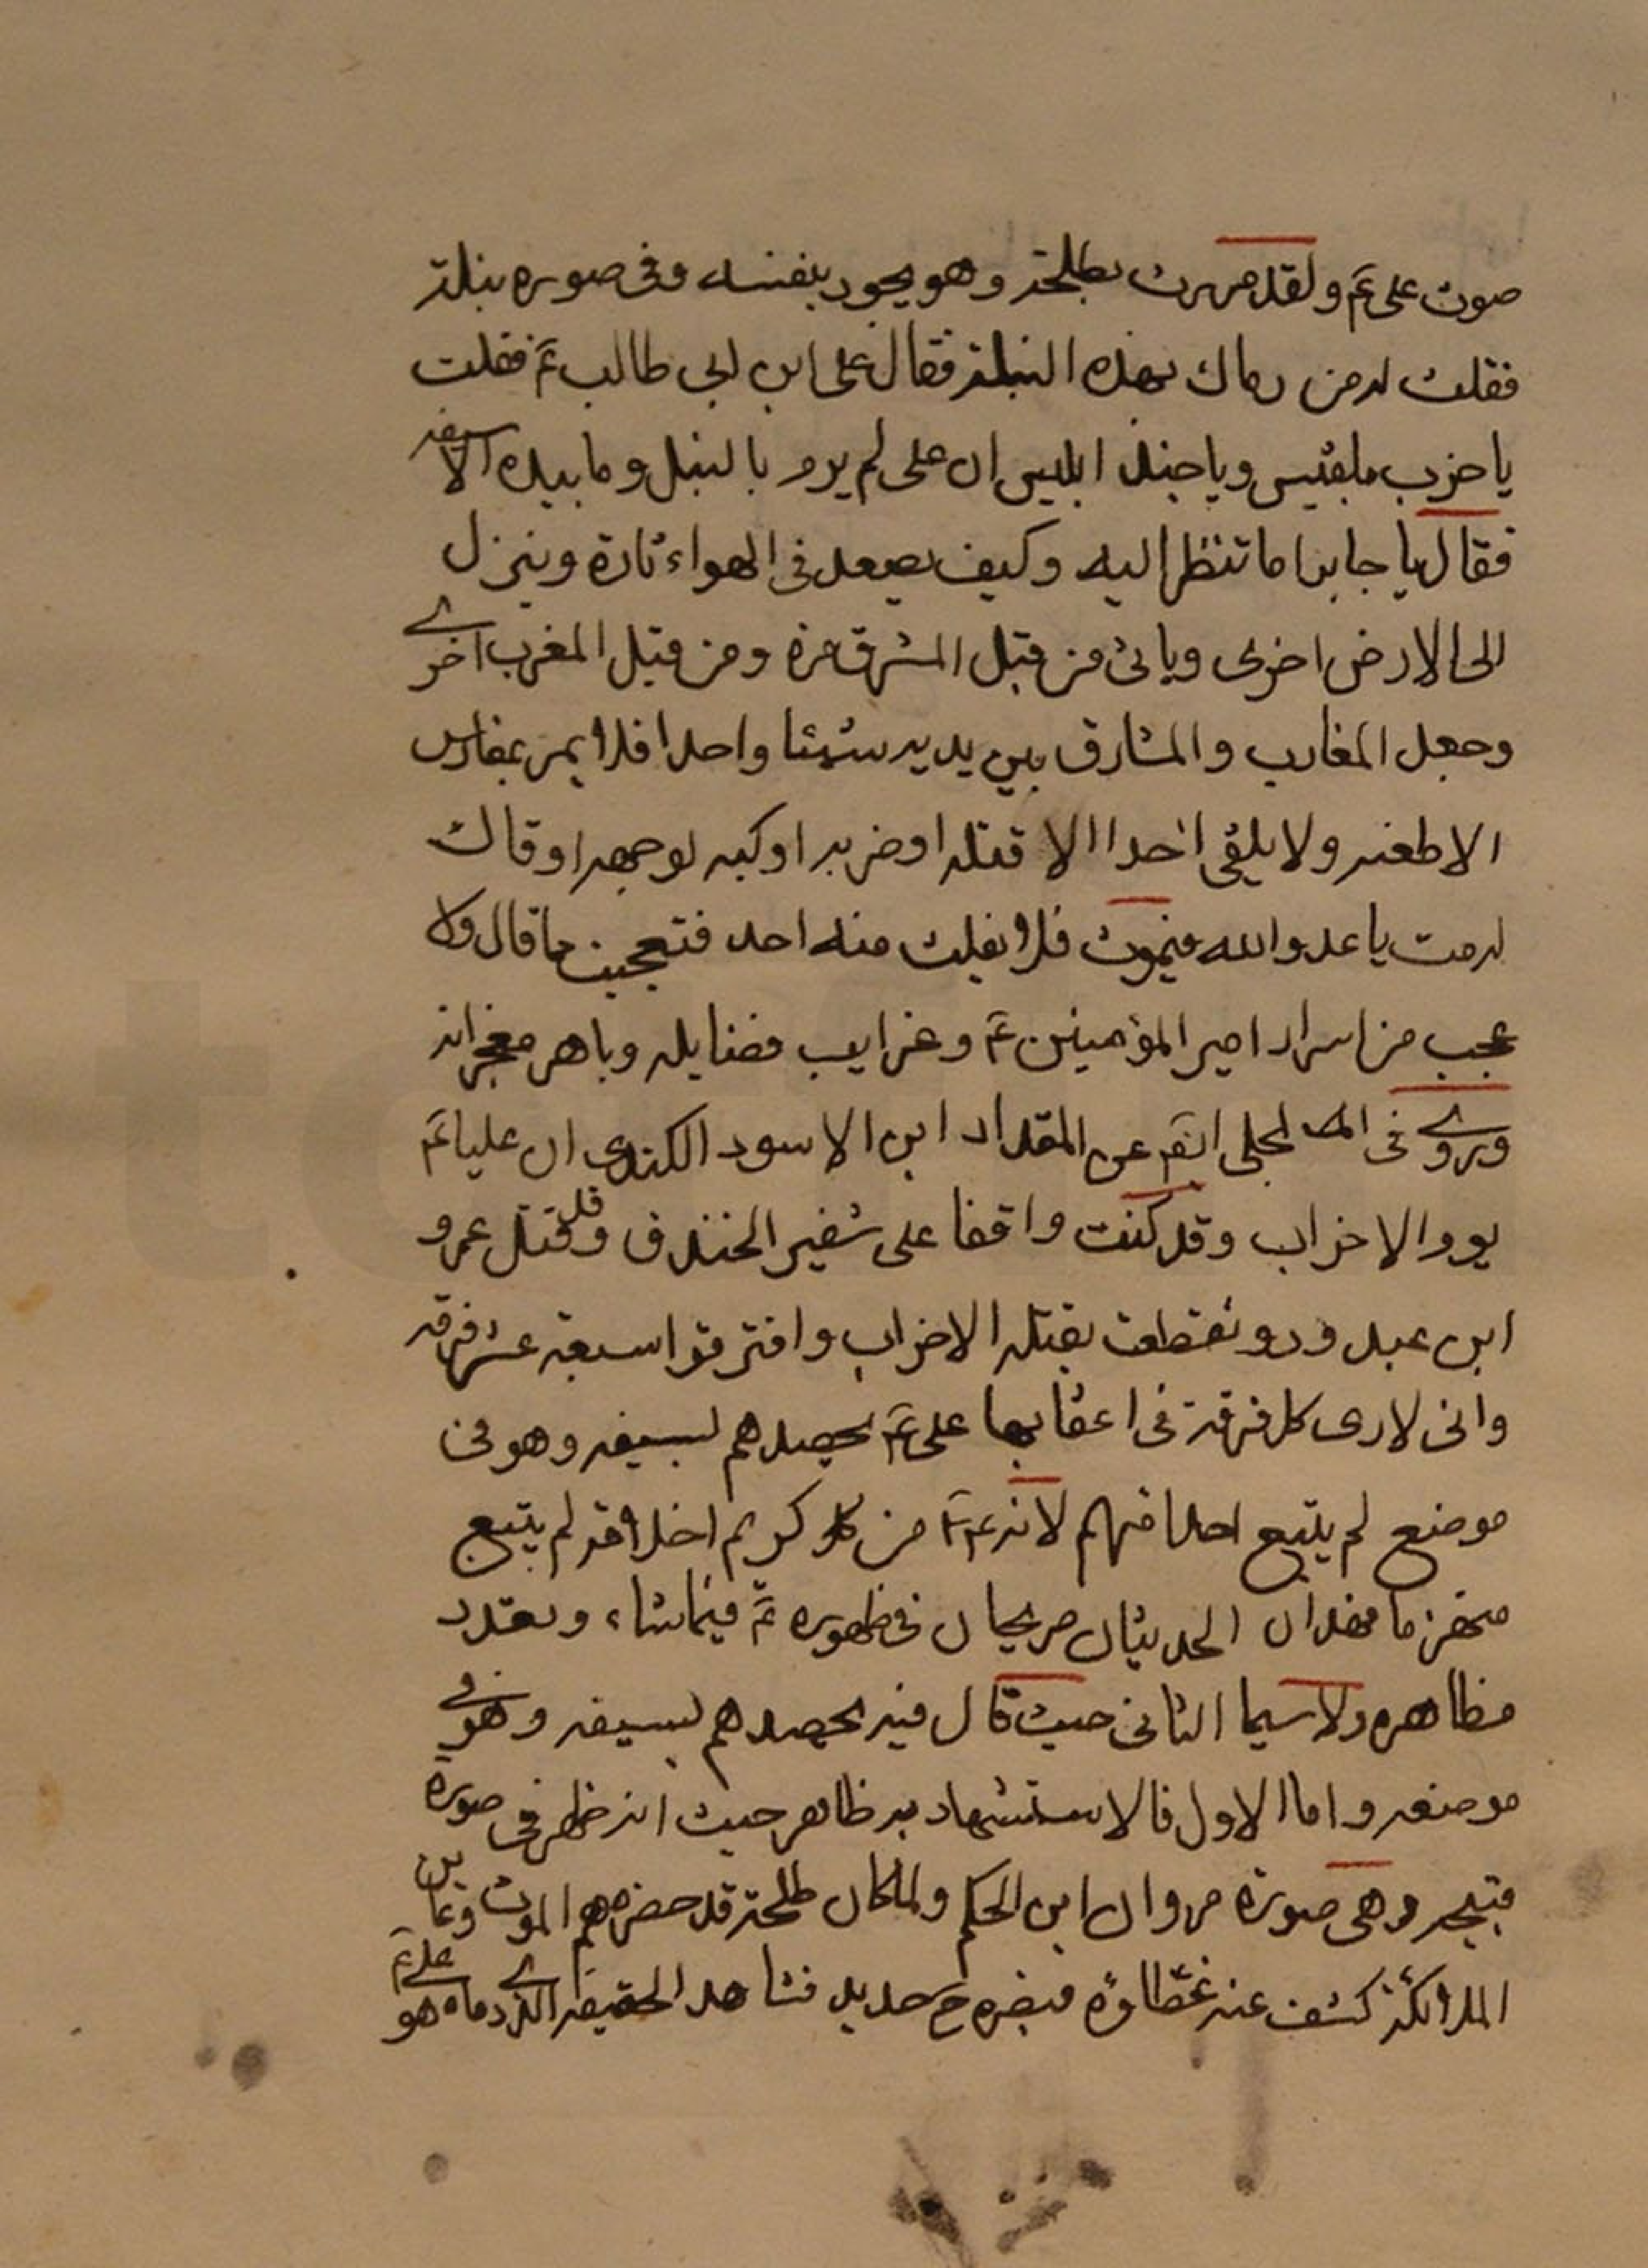 صوت على ع ولقد مررت بطلحة وهو يجود بنفسه وفى صدره نبلة
فقلت له من رماك بهذه النبلة فقال على ابن ابى طالب ع فقلت
يا حزب بلقيس ويا جند ابليس ان على لم يرم بالنبل وما بيده الا سيفه
فقال يا جابر اما تنظر اليه وكيف يصعد فى الهواء تارة وينزل
الى الارض اخرى وياتى من قبل المشرق مرة ومن قبل المغرب اخرى
وجعل المغارب والمشارق بين يديه شيئا واحدا فلا يمر بفارس
الا طعنه ولا يلقى احدا الا قتله او ضربه او كبه لوجهه او قال
له مت يا عدو الله فيموت فلا يفلت منه احد فتعجبت ما قال ولا
عجب من اسرار امير المؤمنين ع وغرايب فضايله وباهر معجزاته
وروى فى المجلى عن المقداد ابن الاسود الكندى ان عليا ع
يوم الاحزاب وقد كنت واقفا على شفير الخندق وقد قتل عمرو
ابن عبد ود وتقطعت بقتله الاحزاب وافترقوا سبعة عشر فرقة
وانى لارى كل فرقة فى اعقابها على ع يحصدهم بسيفه وهو فى
موضع لم يتبع احدا منهم لانه ع من كريم اخلاقه لم يتبع
منهزما فهذان الحديثان صريحان فى ظهوره ع فيما شاء وتعدد
مظاهره ولا سيما الثانى حيث قال فيه يحصدهم بسيفه وهو فى
موضعه واما الاول فالاستشهاد به ظاهر حيث انه ظهر فى صورة
قبيحه وهى صورة مروان ابن الحكم ولما كان طلحة قد حضرهم الموت وعاين
الملائكة كشف عنه غطاؤه فبصره ح حديد فشاهد الحقيقة الذى رماه هو على ع